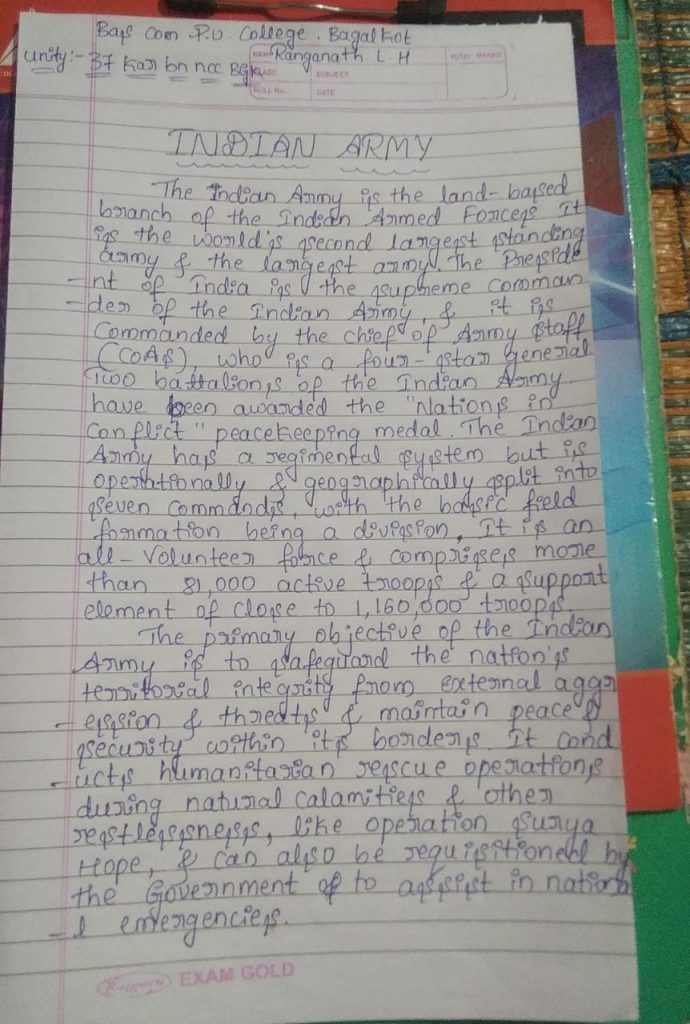 Bags Com P.U. College. Bagalkot
Unity:- 37 Kar bn ncc BGK
NAME Ranganath L H
TOTAL MARKS
CLASS
SUBJECT
ROLL No.
DATE
INDIAN ARMY
The Indian Army is the land-based
branch of the Indian Armed Forces It
is the world's second largest standing
army & the largest army. The Preside
-nt of India is the supreme comman
-der of the Indian Army, & it is
Commanded by the chief of Army staff
(COAS), who is a four-star general
Two battalions of the Indian Army
have been awarded the "Nations in
Conflict" peacekeeping medal. The Indian
Army has a regimental system but is
operationally & geographically split into
seven commands, with the basic field
formation being a division, It is an
all-Volunteer force & comprises more
than 81,000 active troops & a support
element of close to 1,160,000 troops.
The primary objective of the Indian
Army is to safeguard the nation's
territorial integrity from external aggr
-ession & threats & maintain peace &
security within its borders. It cond
-ucts humanitarian rescue operations
during natural calamities & other
restlessness, like operation surya
Hope, & can also be requisitioned by
the Government to assist in nationa
-l emergencies.
EXAM GOLD